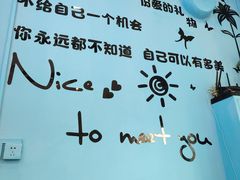 不给自己一个机会
你永远都不知道 自己可以有多美
的爱的礼
物
Nice
to meet you